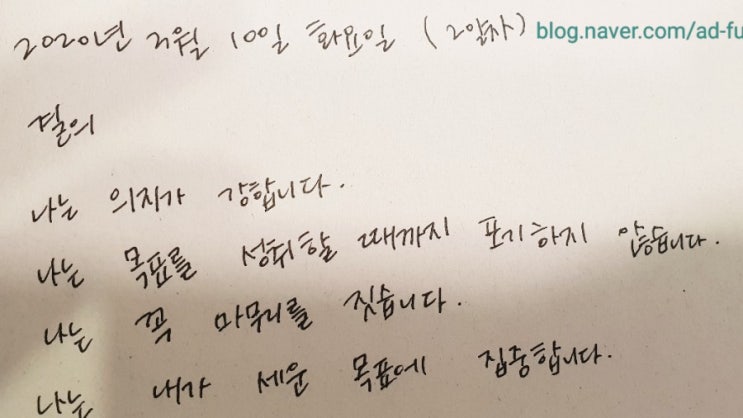 2020년 3월 10일 화요일 (2일차) blog.naver.com/ad-fu
결의
나는 의지가 강합니다.
나는 목표를 성취할 때까지 포기하지 않습니다.
나는 꼭 마무리를 짓습니다.
나는 내가 세운 목표에 집중합니다.